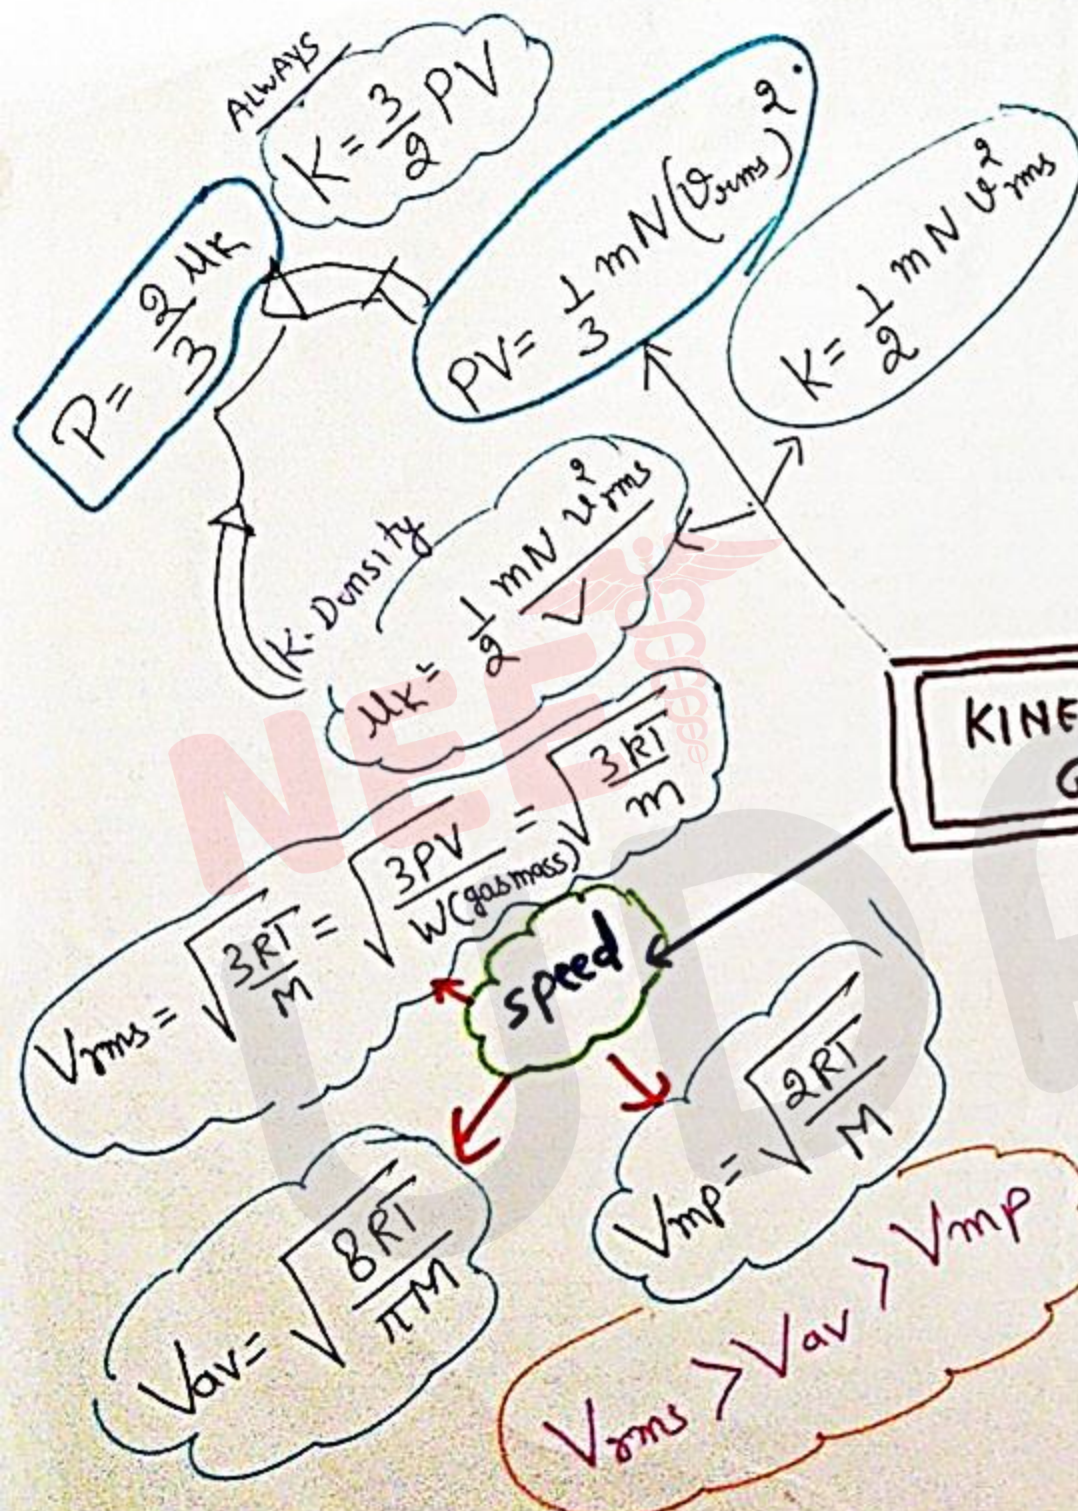 ALWAYS
K = 3/2 PV
P = 2/3 μK
PV = 1/3 mN(vrms)²
K = 1/2 mN v²rms
K. Density
μK = 1/2 mN v²rms / V
KINE
G
Vrms = √(3RT/M) = √(3PV/W(gas mass)) = √(3kT/m)
speed
Vav = √(8RT/πM)
Vmp = √(2RT/M)
Vrms > Vav > Vmp
NEE
UDA